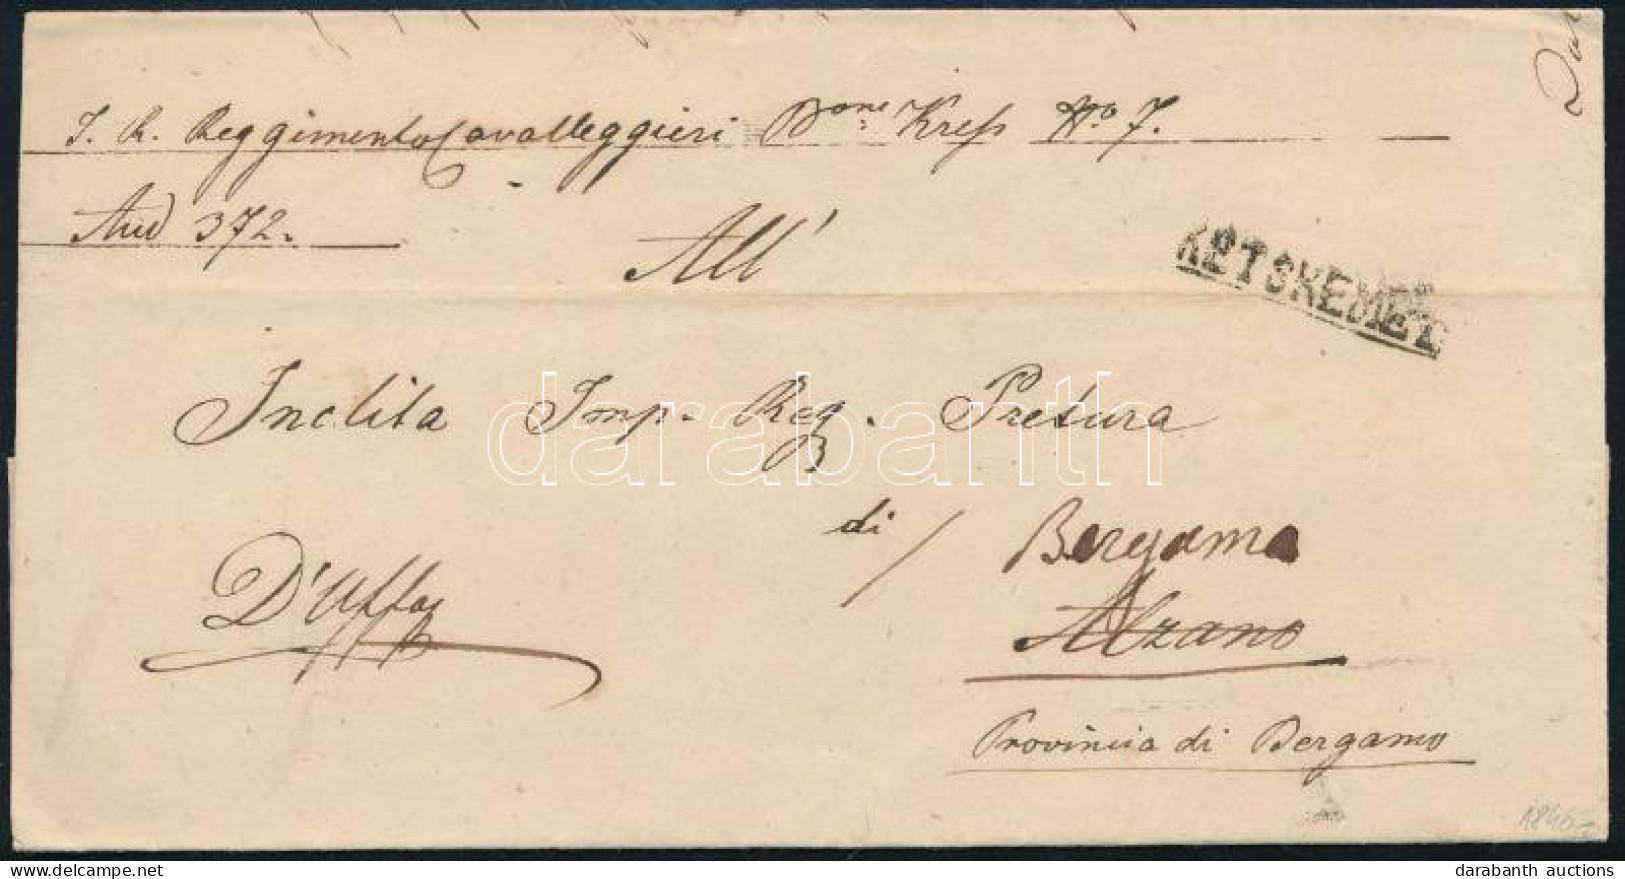 I. R. Reggimento Cavalleggieri Bone Kress No. 7.
Aud 372.
All'
KETSKEMET
Inclita Imp. Reg. Pretura
darabanth
di / Bergamo
D'Uffo
Alzano
Provincia di Bergamo
darabanth auctions